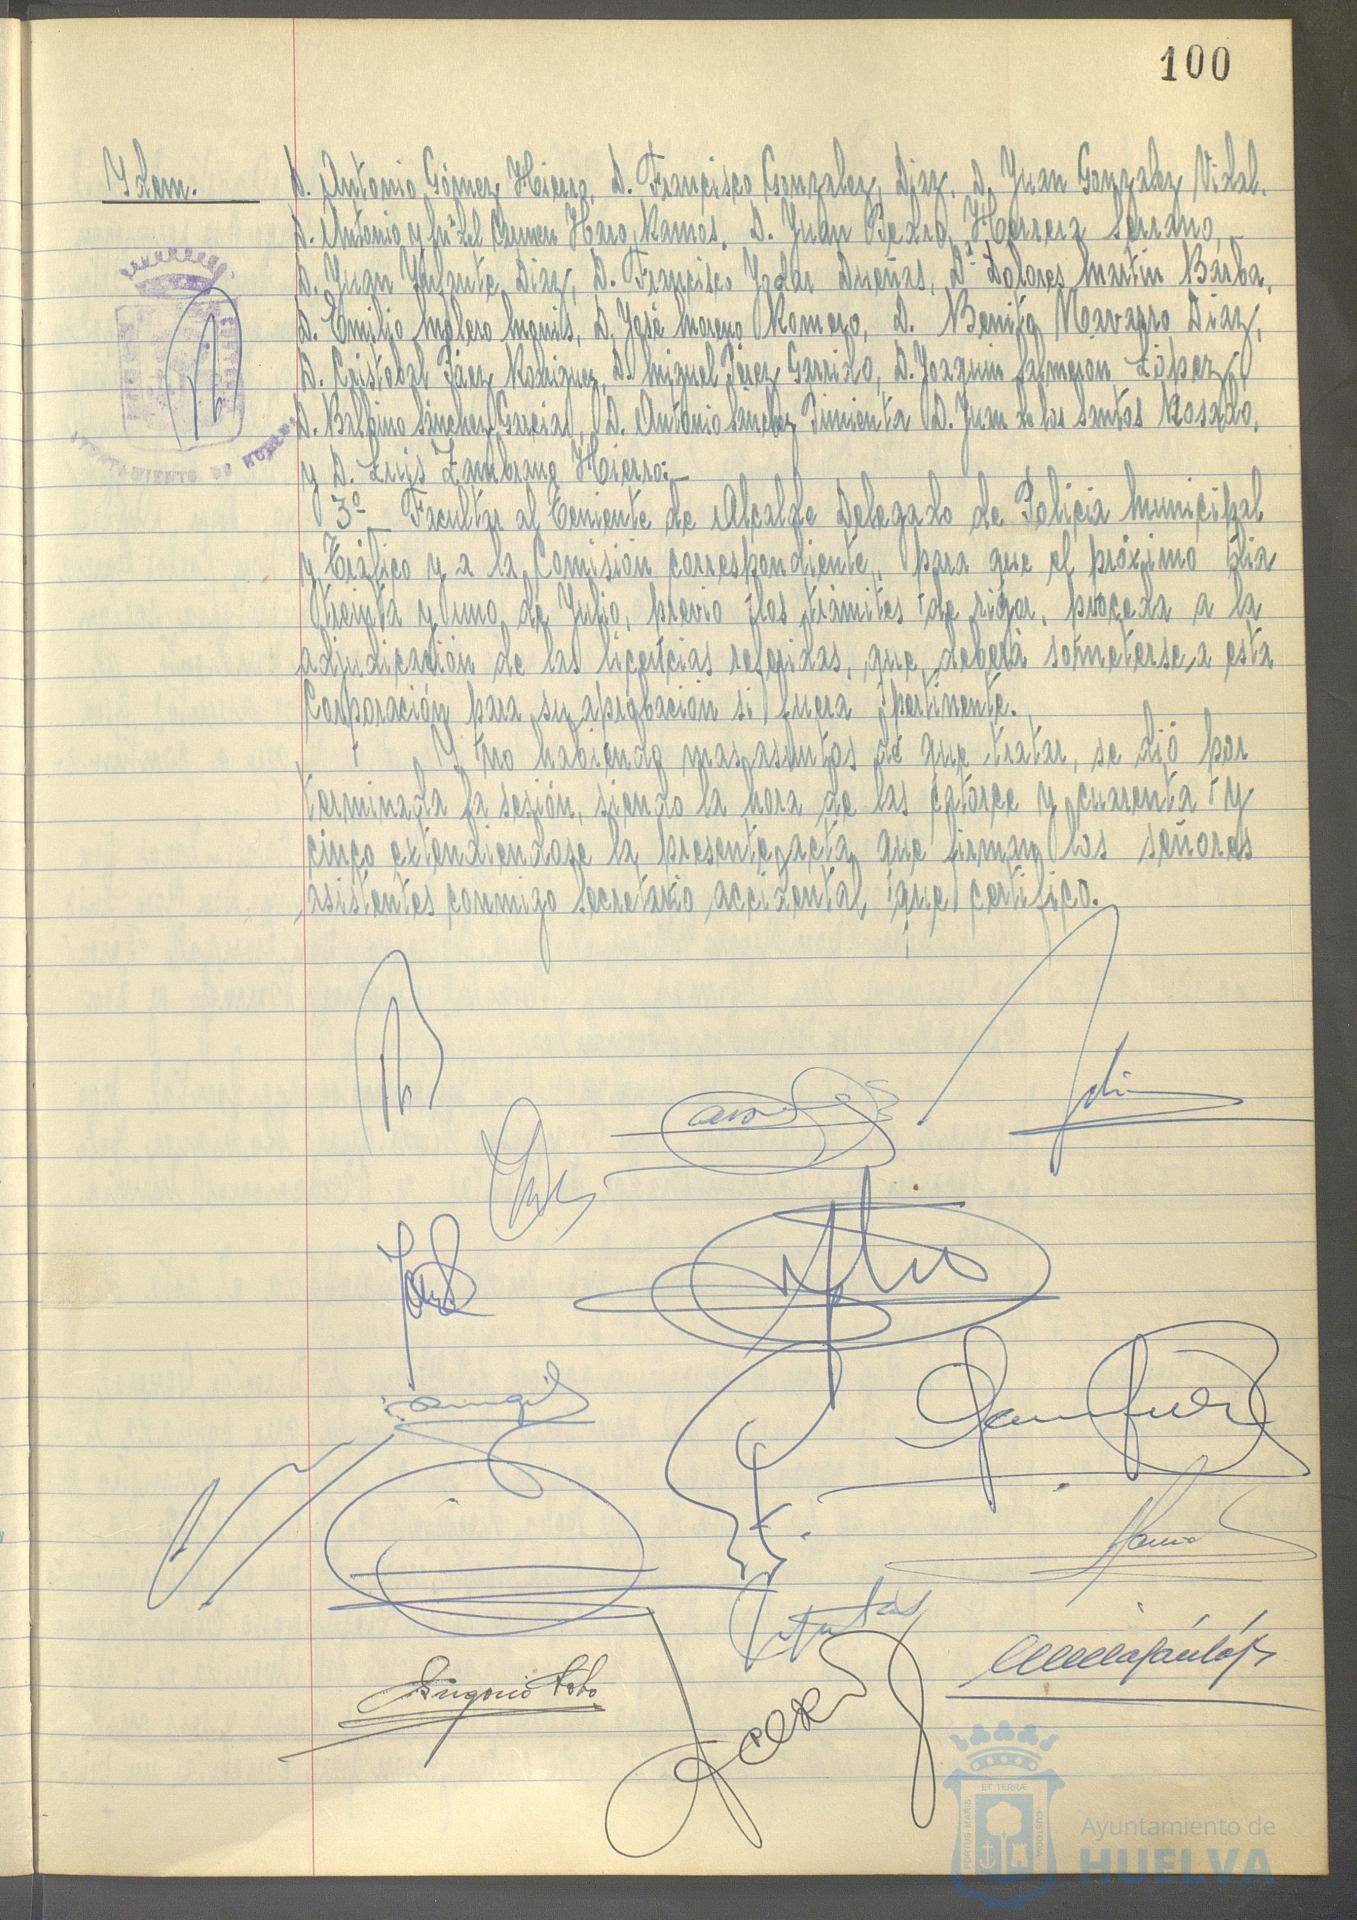 100
Ydem.
D. Antonio Gómez Hierro, D. Francisco Gonzalez Diaz, D. Juan Gonzalez Vidal.
D. Antonio y Mª del Carmen Haro Ramos, D. Juan Pedro Herrera Serrano,
D. Juan Infante Diaz, D. Francisco Jodar Dueñas, Dª Dolores Martin Barba,
D. Emilio Molero Monis, D. José Moreno Romero, D. Benito Navarro Diaz,
D. Cristobal Páez Rodriguez, D. Miguel Pérez Garrido, D. Joaquin Salmerón López,
D. Balbino Sánchez Garcia, D. Antonio Sánchez Pimienta, D. Juan de los Santos Rosado,
y D. Luis Zambrano Hierro.
3º Facultar al Teniente de Alcalde Delegado de Policia Municipal
y Tráfico y a la Comisión correspondiente, para que el próximo dia
treinta y uno de Julio, previo los trámites de rigor, proceda a la
adjudicación de las licencias referidas, que deberá someterse a esta
Corporación para su aprobación si fuera pertinente.
Y no habiendo mas asuntos de que tratar, se dió por
terminada la sesión, siendo la hora de las catorce y cuarenta y
cinco extendiendose la presente acta que firman los señores
asistentes conmigo Secretario accidental que certifico.
AYUNTAMIENTO DE HUELVA
Eugenio Lobo
PORTUS MARIS ET TERRÆ CUSTODIA
Ayuntamiento de
HUELVA